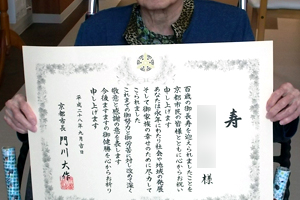 寿
様
百歳の御長寿を迎えられましたことを
京都市民の皆様とともに心からお祝い
申し上げます
あなたは永年にわたり社会や地域の発展
そして御家族の幸せのために尽力して
こられました
これまでの御努力と御労苦に対し改めて深く
敬意と感謝の意を表します
今後ますますの御健勝を心からお祈り
申し上げます
平成二十八年九月吉日
京都市長 門川大作